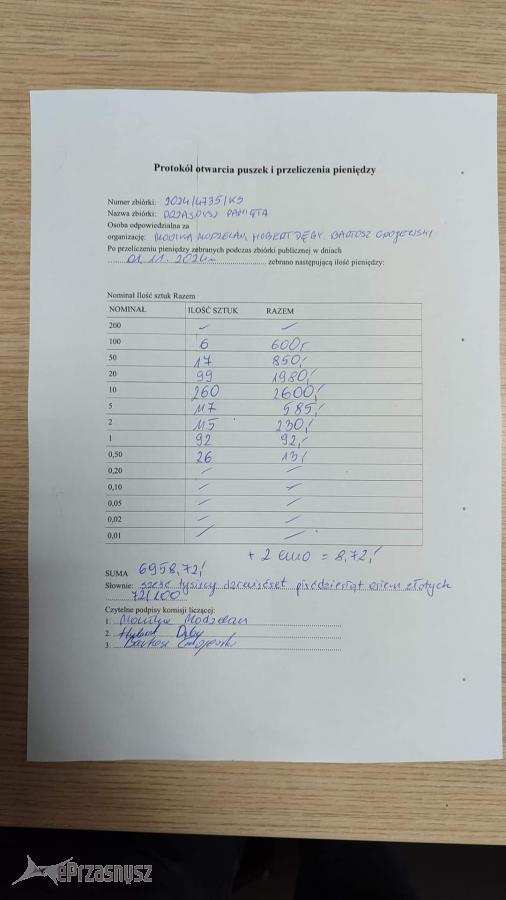 Protokół otwarcia puszek i przeliczenia pieniędzy
Numer zbiórki: 2024/4735/KS
Nazwa zbiórki: DZIAŁDYSZ PAMIĘTA
Osoba odpowiedzialna za
organizację: MONIKA MODZELAN, HUBERT DĘBY BARTOSZ
Po przeliczeniu pieniędzy zebranych podczas zbiórki publicznej w dniach
01.11.2024r zebrano następującą ilość pieniędzy:
Nominał Ilość sztuk Razem
NOMINAŁ ILOŚĆ SZTUK RAZEM
200 — —
100 6 600,-
50 17 850,-
20 99 1980,-
10 260 2600,-
5 117 585,-
2 115 230,-
1 92 92,-
0,50 26 13,-
0,20 — —
0,10 — —
0,05 — —
0,02 — —
0,01 — —
+ 2 euro = 8,72,-
SUMA 6958,72,-
Słownie: sześć tysięcy dziewięćset pięćdziesiąt osiem złotych
72/100
Czytelne podpisy komisji liczącej:
1. Monika Modzelan
2. Hubert Dęby
3. Bartosz
ePrzasnysz